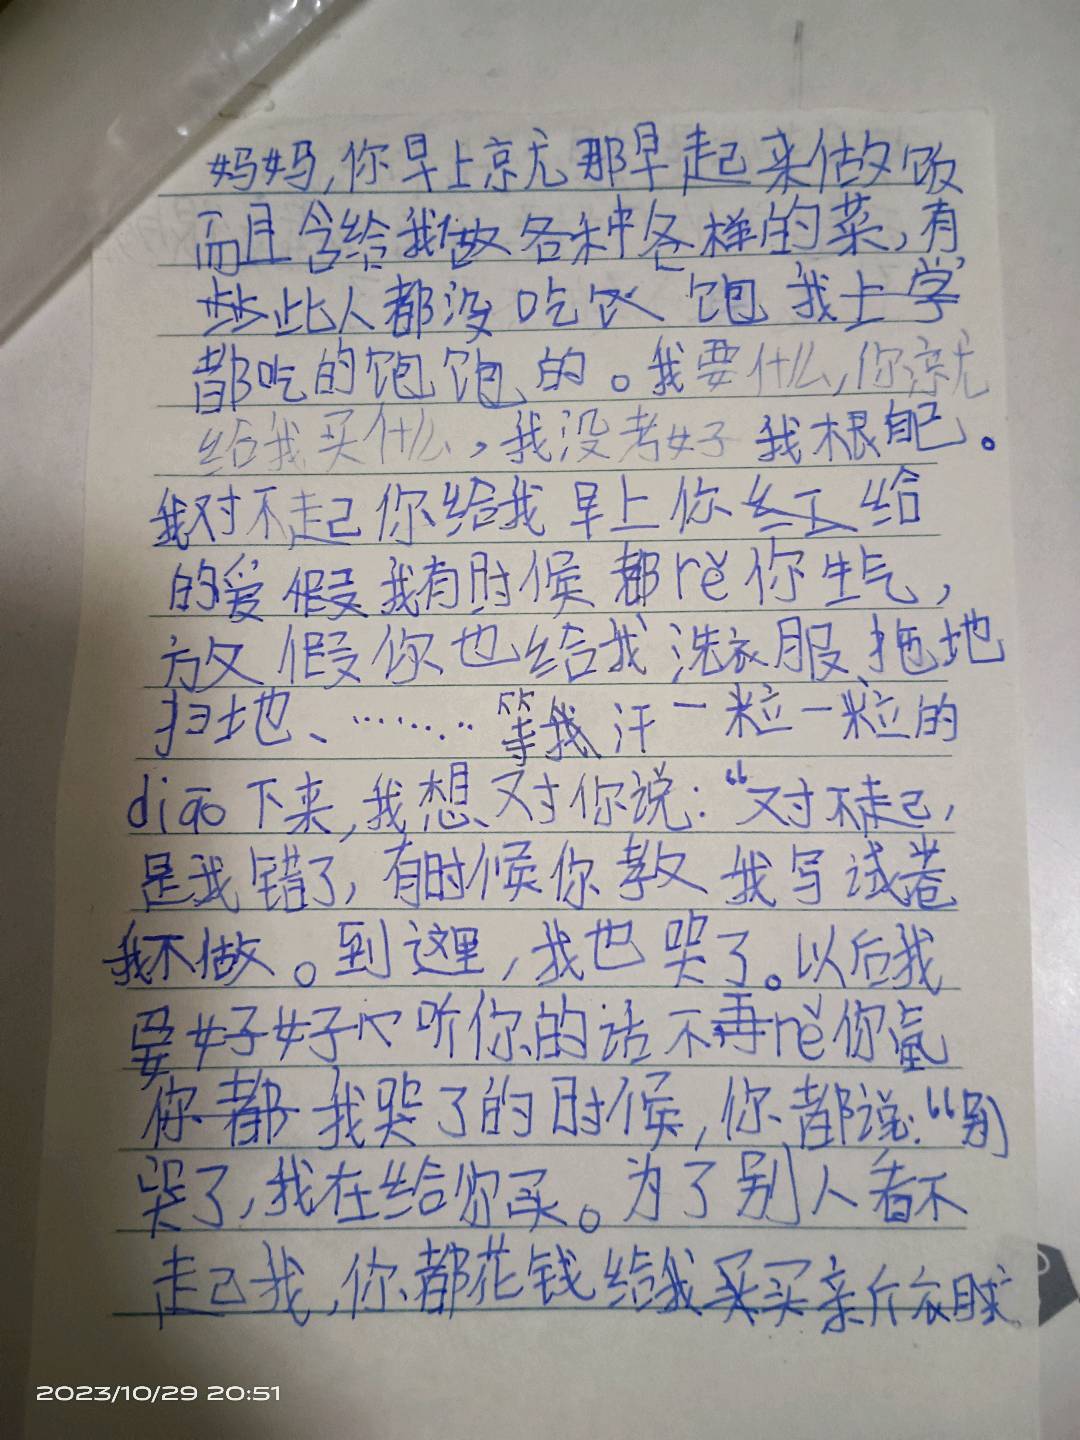 妈妈,你早上京尤那早起来做饭
而且含给我做各种各样的菜,有
些人都没吃饭 饱 我上学
都吃的饱饱的。我要什么,你京尤
给我买什么,我没考好 我根自己。
我对不起你给我早上你红给
的爱 假我有时候都rě你生气,
放假你也给我洗衣服拖地
扫地、………等我汗一粒一粒的
diāo下来,我想对你说:“对不起,
是我错了,有时候你教我写试卷
我不做。到这里,我也哭了。以后我
要好好心听你的话不再rě你
你都我哭了的时候,你都说:“别
哭了,我在给你买。为了别人看不
起我,你都花钱给我买买亲斤衣服
2023/10/29 20:51